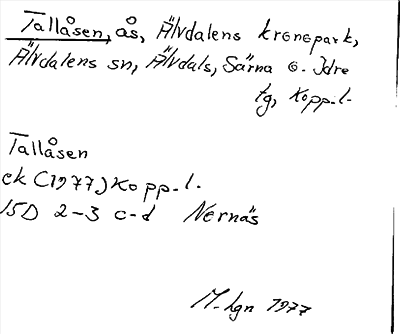 Tallåsen, ås, Älvdalens kronopark,
Älvdalens sn, Älvdals, Särna o. Idre
tg, Kopp.l.
Tallåsen
ek (1977) Kopp.l.
15D 2-3 c-d Nernäs
M.hgn 1977